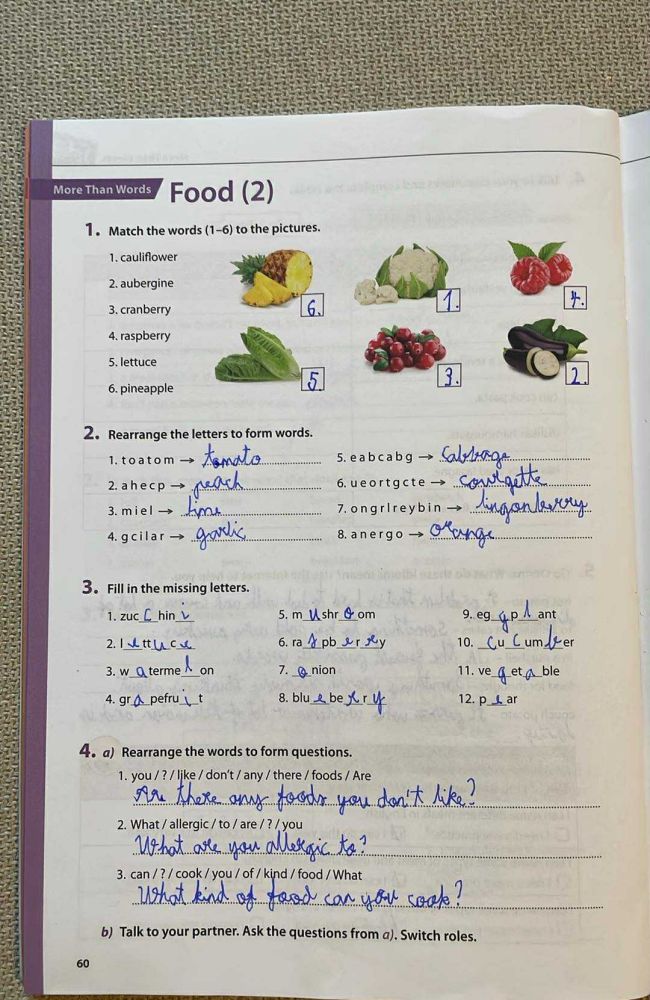 More Than Words Food (2)
1. Match the words (1–6) to the pictures.
1. cauliflower
2. aubergine
3. cranberry
4. raspberry
5. lettuce
6. pineapple
6. 1. 4.
5 3. 2.
2. Rearrange the letters to form words.
1. t o a t o m → tomato
2. a h e c p → peach
3. m i e l → lime
4. g c i l a r → garlic
5. e a b c a b g → Cabbage
6. u e o r t g c t e → courgette
7. o n g r l r e y b i n → lingonberry
8. a n e r g o → orange
3. Fill in the missing letters.
1. zucchini
2. lettuce
3. watermelon
4. grapefruit
5. mushroom
6. raspberry
7. onion
8. blueberry
9. eggplant
10. cucumber
11. vegetable
12. pear
4. a) Rearrange the words to form questions.
1. you / ? / like / don't / any / there / foods / Are
Are there any foods you don't like?
2. What / allergic / to / are / ? / you
What are you allergic to?
3. can / ? / cook / you / of / kind / food / What
What kind of food can you cook?
b) Talk to your partner. Ask the questions from a). Switch roles.
60